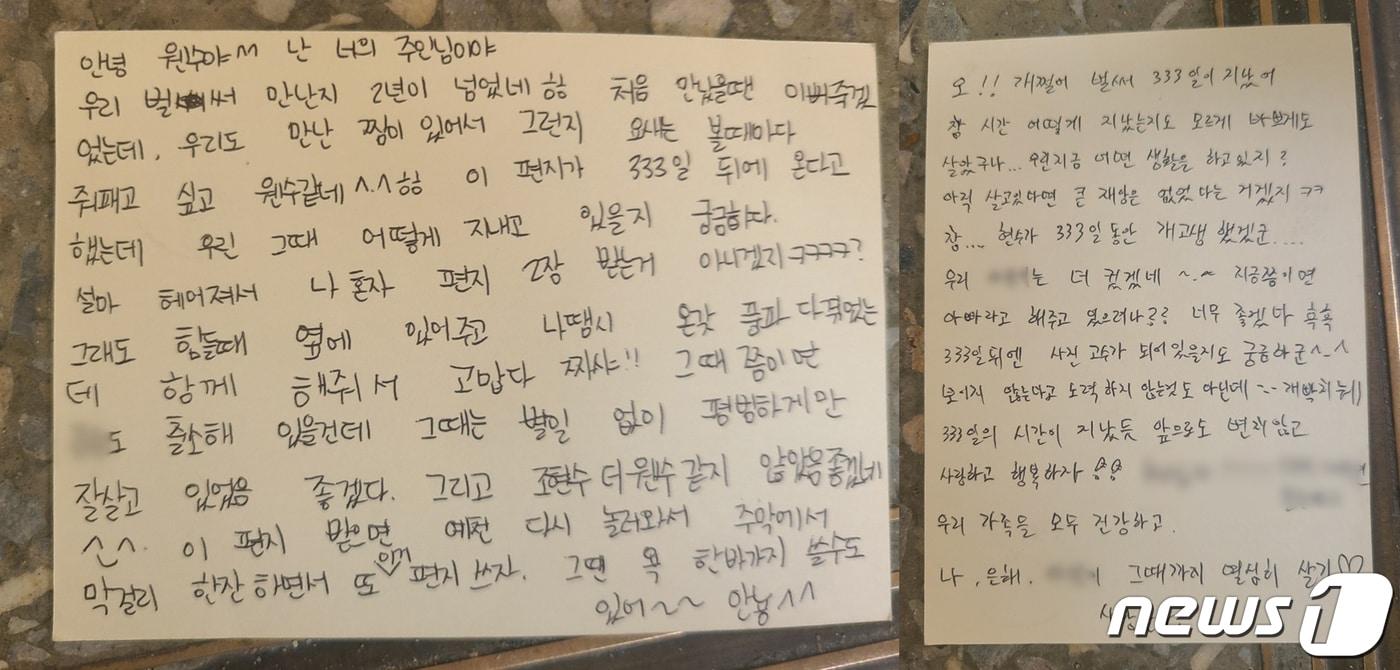 안녕 웬수야^^ 난 너의 주인님이야
우리 벌써 만난지 2년이 넘었네 ㅎㅎ 처음 만났을땐 이뻐죽겠
었는데, 우리도 만난 찜이 있어서 그런지 요새는 볼때마다
줘패고 싶고 웬수같네^.^ㅎㅎ 이 편지가 333일 뒤에 온다고
했는데 우린 그때 어떻게 지내고 있을지 궁금하다.
설마 헤어져서 나혼자 편지 2장 받는거 아니겠지ㅋㅋㅋㅋ?
그래도 힘들때 옆에 있어주고 나땜시 온갖 풍파 다겪었는
데 함께 해줘서 고맙다 짜샤!! 그때쯤이면
도 출소해 있을건데 그때는 별일 없이 평범하게만
잘살고 있었음 좋겠다. 그리고 조현수 더 웬수같지 않았음좋겠네
^^. 이 편지 받으면 예전 다시 놀러와서 주막에서
막걸리 한잔하면서 또 와서 편지쓰자. 그땐 욕 한바가지 쓸수도
있어~~ 안뇽^^
오!! 개쩔어 벌써 333일이 지났어
참 시간 어떻게 지났는지도 모르게 바쁘게도
살았구나... 오련지금 어떤 생활을 하고있지?
아직 살고있다면 큰 재앙은 없었다는 거겠지 ㅋㅋ
참... 현수가 333일동안 개고생 했겠군....
우리 는 더 컸겠네 ~.~ 지금쯤이면
아빠라고 해주고 있으려나?? 너무 좋겠다 흑흑
333일뒤엔 사진 고수가 되어있을지도 궁금하군^-^
보이지 않는다고 노력하지 않는것도 아닌데 ~~ 개빡치네
333일의 시간이 지났듯 앞으로도 변치않고
사랑하고 행복하자
우리 가족들 모두 건강하고.
나, 은해. 그때까지 열심히 살기♡
news1